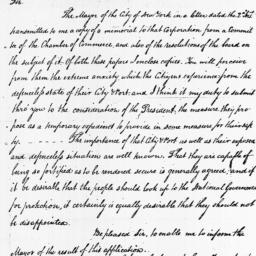 Sir.
The Mayor of the City of New York in a letter dated the 2d Feb
transmitted to me a copy of a memorial to that Corporation from a commit
ee of the Chamber of Commerce, and also of the resolutions of the board on
the subject of it. Of both these papers I enclose copies. You will perceive
from them the extreme anxiety which the Citizens experience from the
defenceless state of their City & Port: and I think it my duty to submit
thro' you to the consideration of the President, the measure they pro
pose as a temporary expedient to provide in some measure for their
The importance of that City & Port as well as their exposed
and defenceless situation are well known. That they are capable of
being so fortified as to be rendered secure is generally agreed, and if
it be desirable that the people should look up to the National Government
for protection, it certainly is equally desirable that they should not
be disappointed.
Be pleased Sir, to enable me to inform the
Mayor of the result of this application.